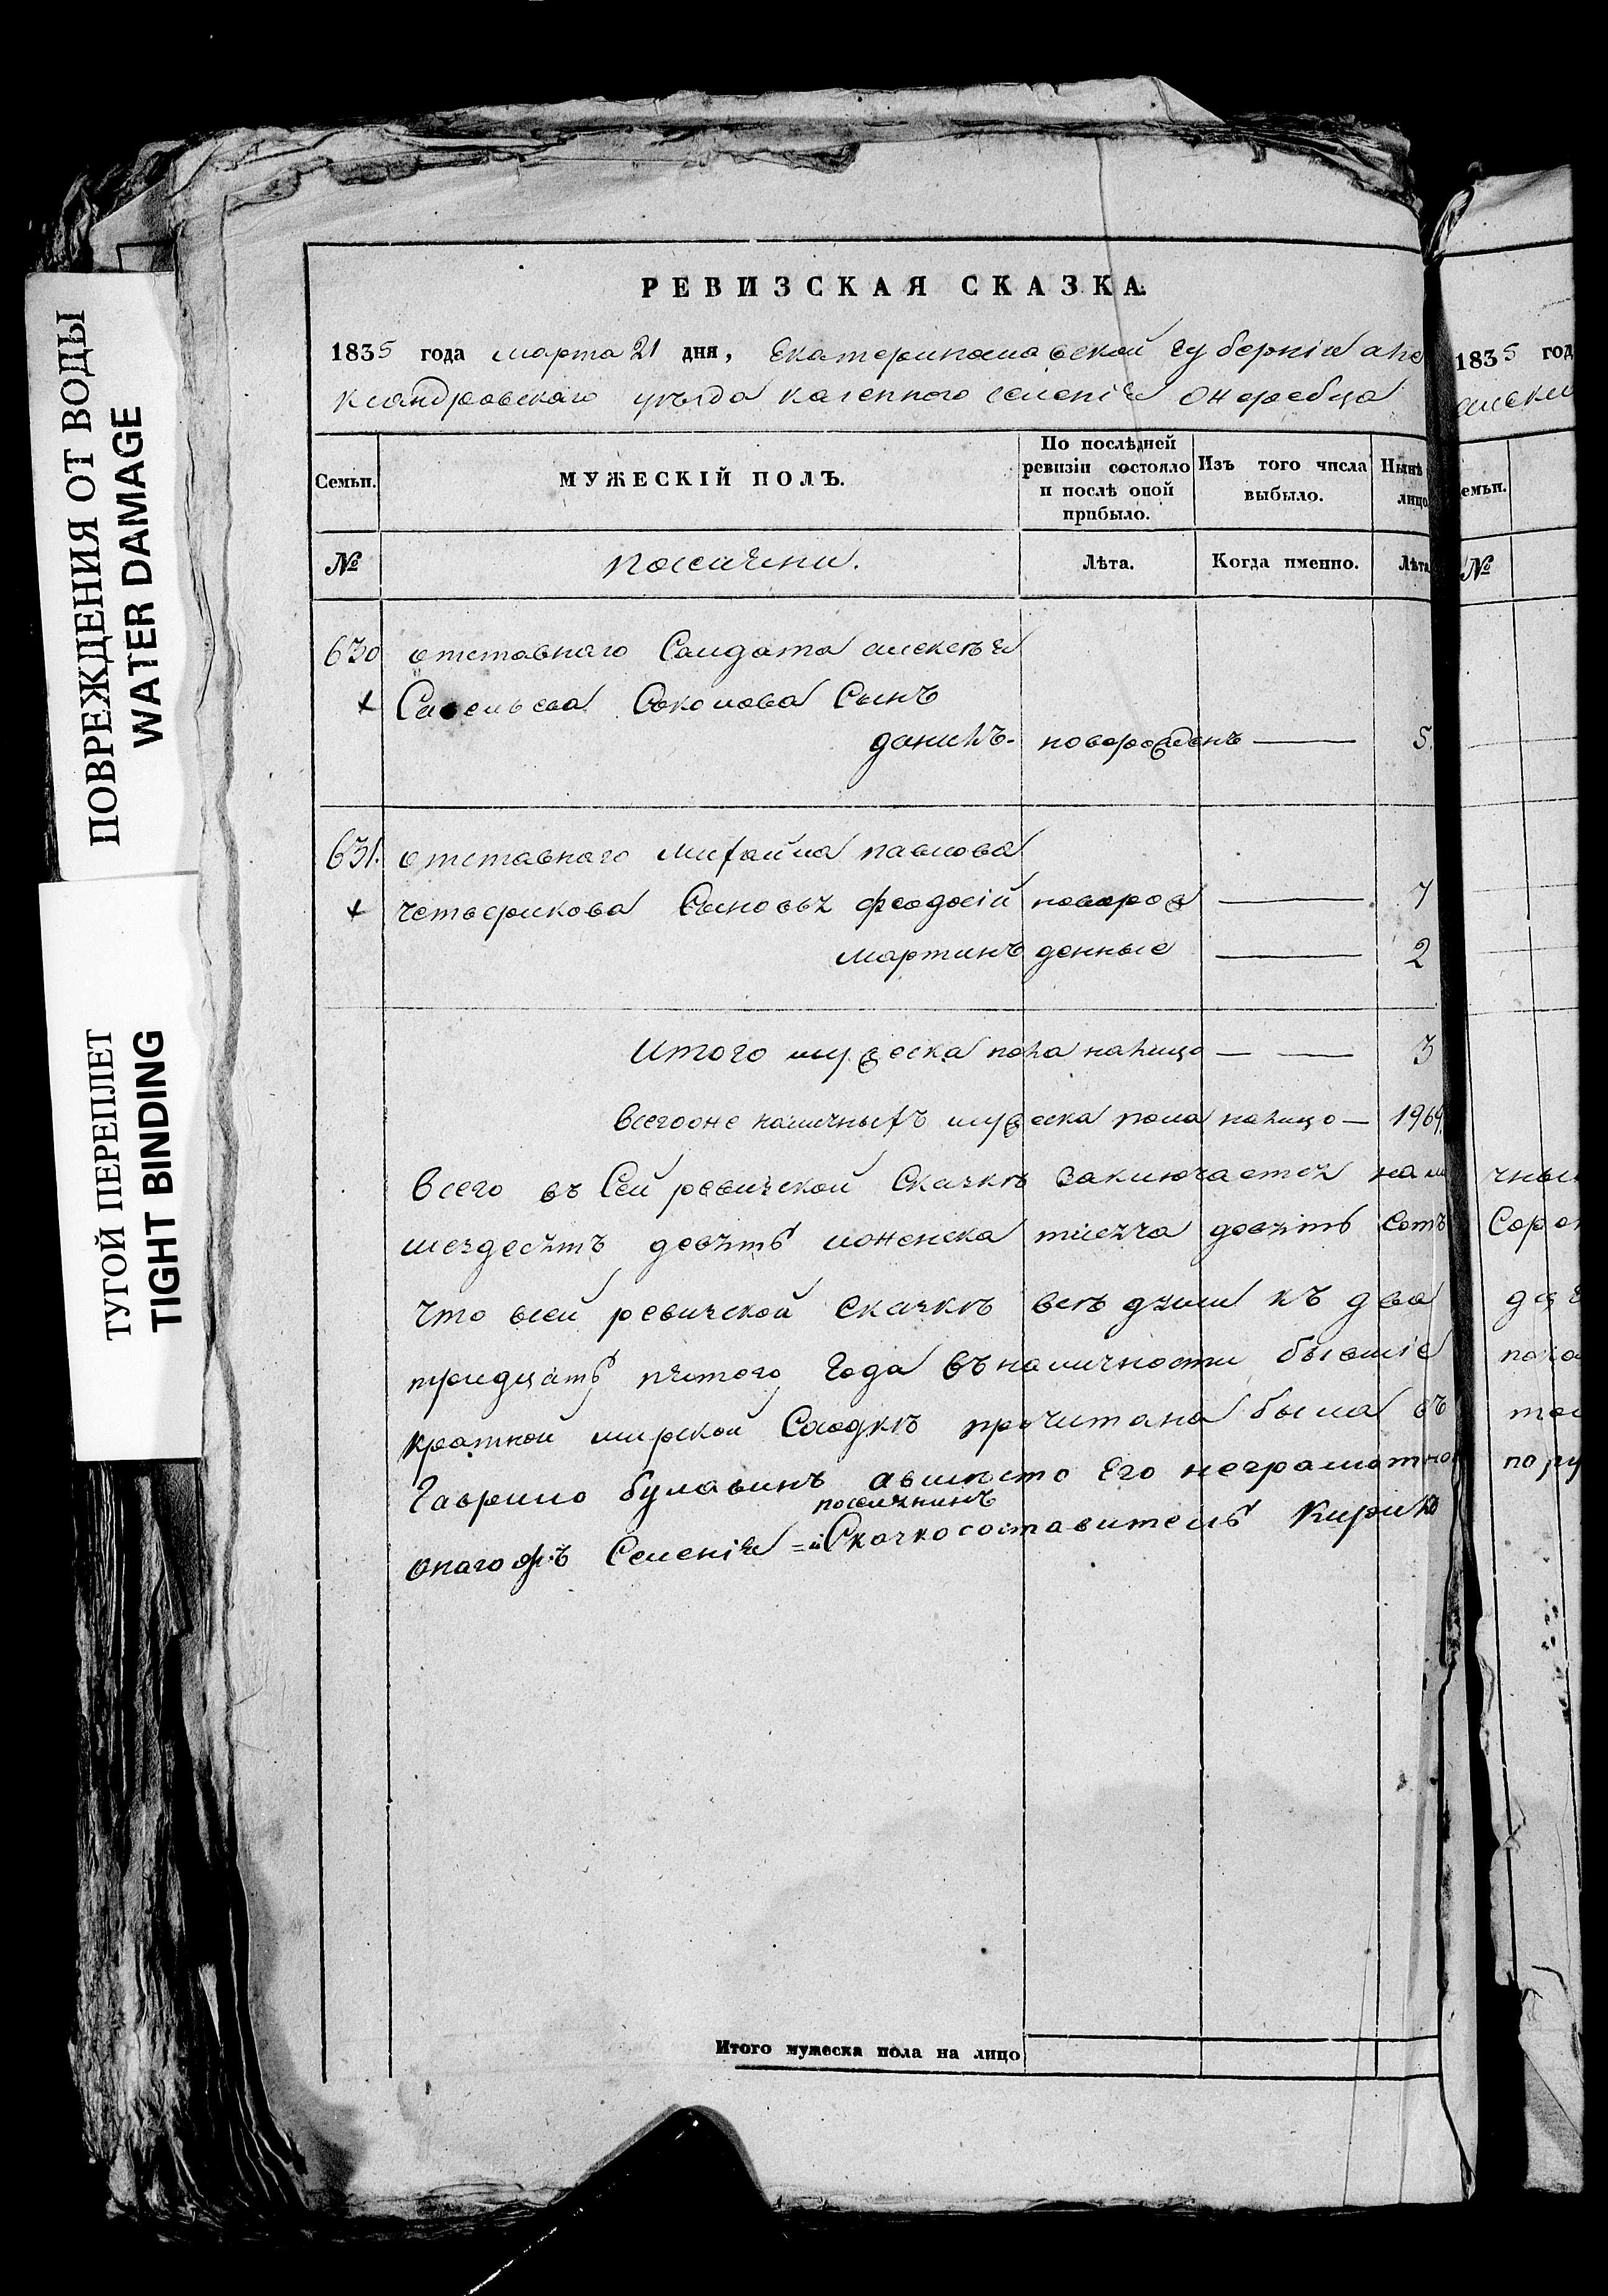 ПОВРЕЖДЕНИЯ ОТ ВОДЫ
WATER DAMAGE
ТУГОЙ ПЕРЕПЛЕТ
TIGHT BINDING
РЕВИЗСКАЯ СКАЗКА.
1835 года марта 21 дня, Екатеринославской губерніи але
ксандровскаго уѣзда казенного селенія
Семьи. МУЖЕСКІЙ ПОЛЪ. По послѣдней ревизіи состояло и послѣ оной прибыло. Изъ того числа выбыло. Нынѣ лицо
№ поселяни. Лѣта. Когда именно. Лѣта
630 отставнаго Салдата алексѣя
Савельева Соколова Сынъ
данилъ. новорожденъ — 5.
631. отставнаго михайла павлова
четверикова Сыновья феодосій новорож — 7
мартинъ денные — 2
Итого мужеска пола налицо — — 3
всего наличныхъ мужеска пола налицо — 1969.
Всего въ Сей ревизской Сказкѣ Заключается нали
шездесятъ девять иженска тысяча девять Сотъ
что всей ревизской Сказкѣ всѣ души къ два
тридцать пятого Года въ наличности бывшіе
кратной мирской Сходкѣ прочитана была въ
Гаврило булавинъ авместо Его неграмотно
поселянинъ
онаго жъ Селенія = Сказкосоставитель Кирил
Итого мужеска пола на лицо
1835 год
емьи.
№
чных
Соро
два
пока
по ру